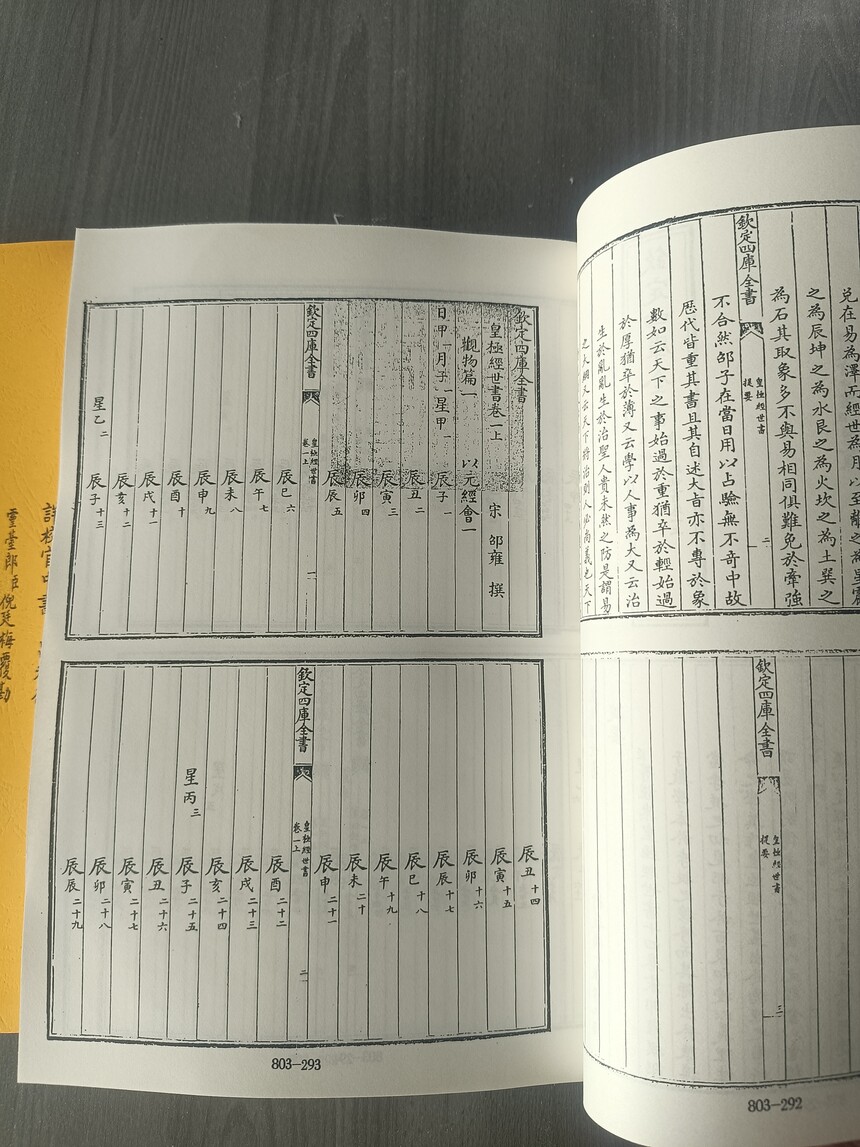 兌在易為澤而經世為月以至離之為星震
之為辰坤之為水艮之為火坎之為土巽之
為石其取象多不與易相同俱難免於牽強
欽定四庫全書
皇極經世書
提要
二
不合然邵子在當日用以占驗無不奇中故
厯代皆重其書且其自述大旨亦不專於象
數如云天下之事始過於重猶卒於輕始過
於厚猶卒於薄又云學以人事為大又云治
生於亂亂生於治聖人貴未然之防是謂易
之大綱又云天下將治則人必尚義也天下
欽定四庫全書
皇極經世書
提要
三
803-292
欽定四庫全書
皇極經世書卷一上 宋 邵雍 撰
觀物篇一 以元經會一
日甲一月子一星甲一辰子一
辰丑二
辰寅三
辰卯四
辰辰五
欽定四庫全書
皇極經世書
卷一上
一
辰巳六
辰午七
辰未八
辰申九
辰酉十
辰戌十一
辰亥十二
星乙二 辰子十三
辰丑十四
辰寅十五
辰卯十六
辰辰十七
辰巳十八
辰午十九
辰未二十
辰申二十一
欽定四庫全書
皇極經世書
卷一上
二
辰酉二十二
辰戌二十三
辰亥二十四
星丙三 辰子二十五
辰丑二十六
辰寅二十七
辰卯二十八
辰辰二十九
803-293
詳校官中書
靈臺郎臣倪廷梅覆勘